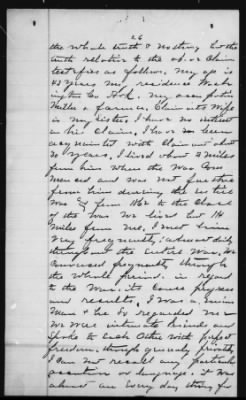 26
the whole truth & nothing but the
truth relative to the
testifies as follows. my age is
43 years my residence
Co. my occupation
Miller & farmer, Claimant's Wife
is my sister, I have no interest
in his Claim, I have been
acquainted with Claimant about
30 years, I lived about 4 miles
from him when the War Com
menced and was not
from him during the entire
War from 1862 to the Close
of the War We lived but 1¼
Miles from me, I met him
very frequently, almost daily
throughout the entire War, we
conversed frequently through
the whole period in regard
to the War; its cause progress
and results, I was a Union
Man & he so regarded me
We were intimate friends and
spoke to each other with perfect
freedom, though generally privately
I can not recall any particular
occasion or language. it was
almost an every day thing for